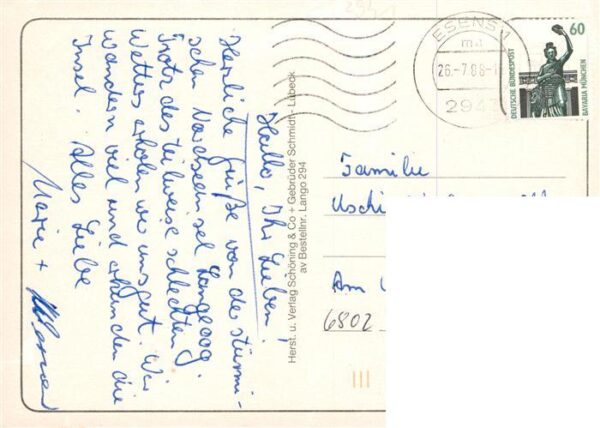 Hallo, Ihr Lieben!
Herzliche Grüße von der stürmi-
schen Nordseeinsel Langeoog.
Trotz des teilweise schlechten
Wetters erholen wir uns gut. Wir
wandern viel und erkunden die
Insel. Alles Liebe
Marie +
Herst. u. Verlag Schöning & Co + Gebrüder Schmidt - Lübeck
av Bestellnr. Lango 294
ESENS 1
26.-7.88-1
294
60
DEUTSCHE BUNDESPOST
BAVARIA MÜNCHEN
Familie
Uschi
Am
6802